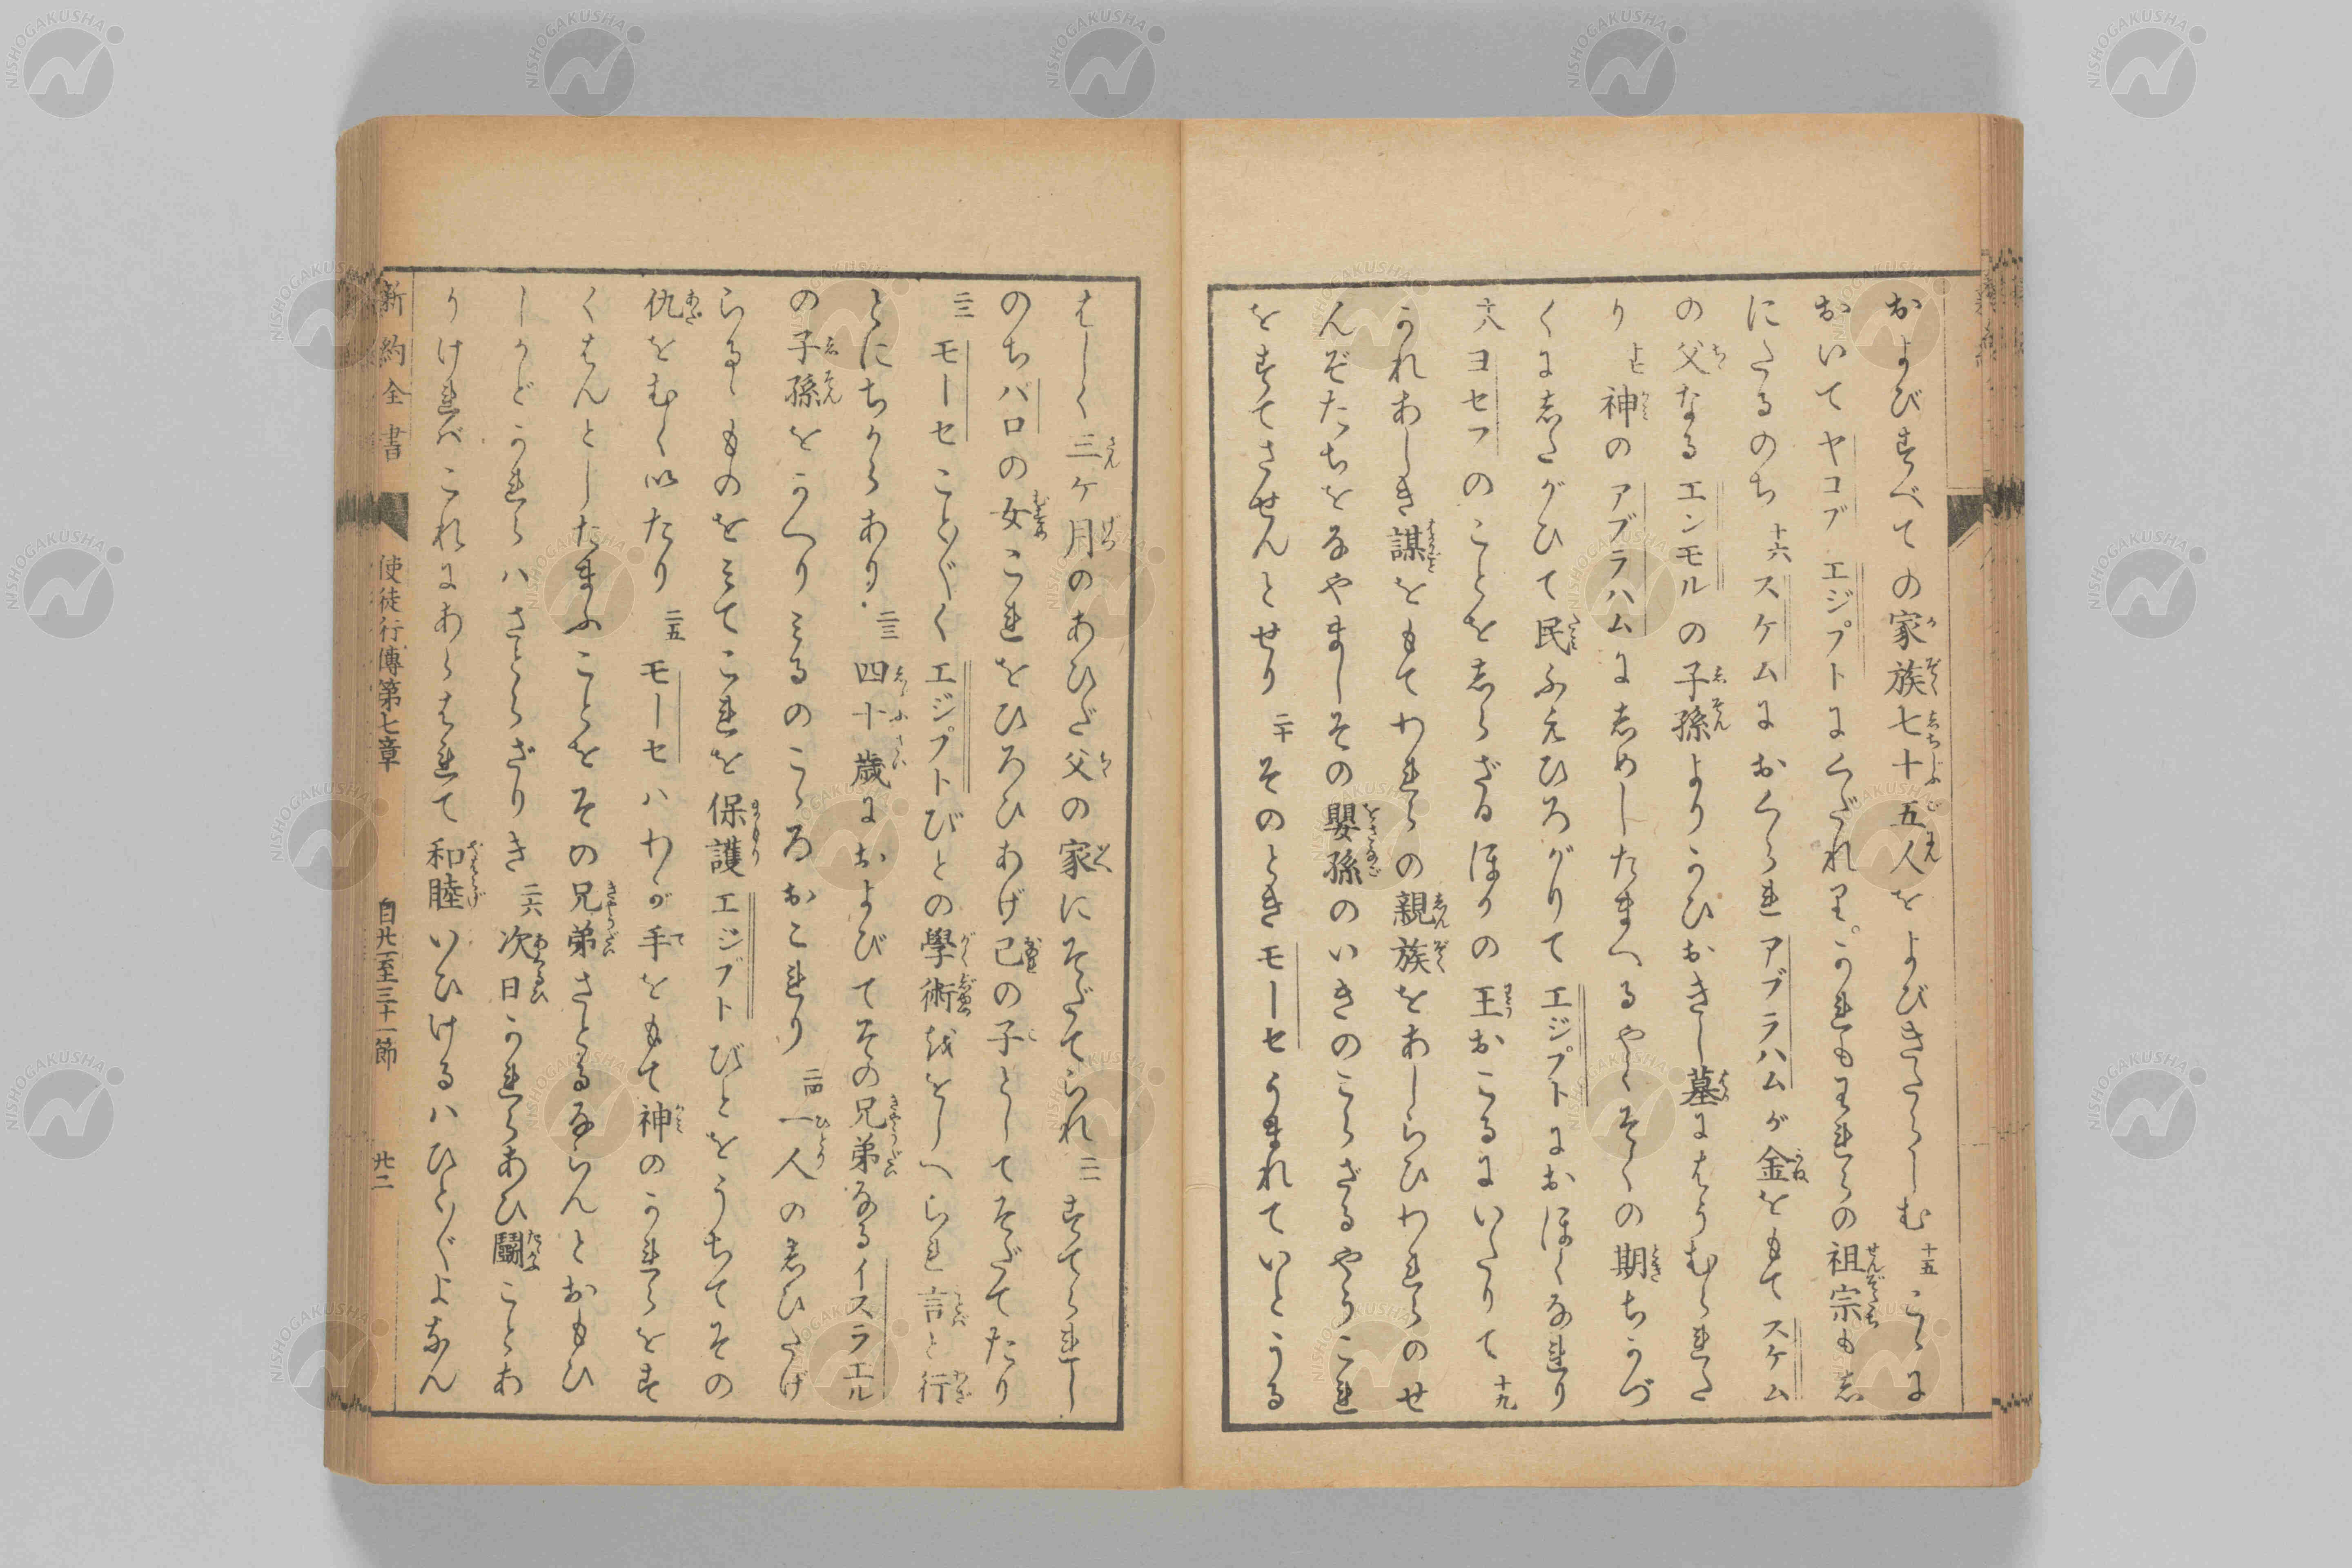 およびすべての家族七十五人をよびきたらしむ 十五 こゝに
おいてヤコブ エジプトにくだれり。かれもわれらの祖宗も志
にたるのち 十六 スケムにおくられアブラハムが金をもてスケム
の父なるエンモルの子孫よりかひおきし墓にはうむられた
り 十七 神のアブラハムに志めしたまへるやくそくの期ちかづ
くに志たがひて民ふえひろがりてエジプトにおほくなれり
十八 ヨセフのことを志らざるほかの王おこるにいたりて 十九
かれあしき謀をもてわれらの親族をあしらひわれらのせ
んぞたちをなやましその嬰孫のいきのこらざるやうこれ
をすてさせんとせり 二十 そのときモーセうまれていとうる
はしく三ケ月のあひだ父の家にそだてられ 二一 すてられし
のちバロの女これをひろひあげ己の子としてそだてたり
二二 モーセことごとくエジプトびとの學術ををしへられ言と行
とにちからあり. 二三 四十歳におよびてその兄弟なるイスラエル
の子孫をかへりみるのこゝろおこれり 二四 一人の志ひたげ
らるゝものをみてこれを保護エジプトびとをうちてその
仇をむくいたり 二五 モーセハわが手をもて神のかれらをす
くはんとしたまふことをその兄弟さとるならんとおもひ
しかどかれらハさとらざりき 二六 次日かれらあひ鬭ことあ
りければこれにあらはれて和睦いひけるハひとびとよなん
新約全書 使徒行傳第七章 自廿一至三十一節 廿二